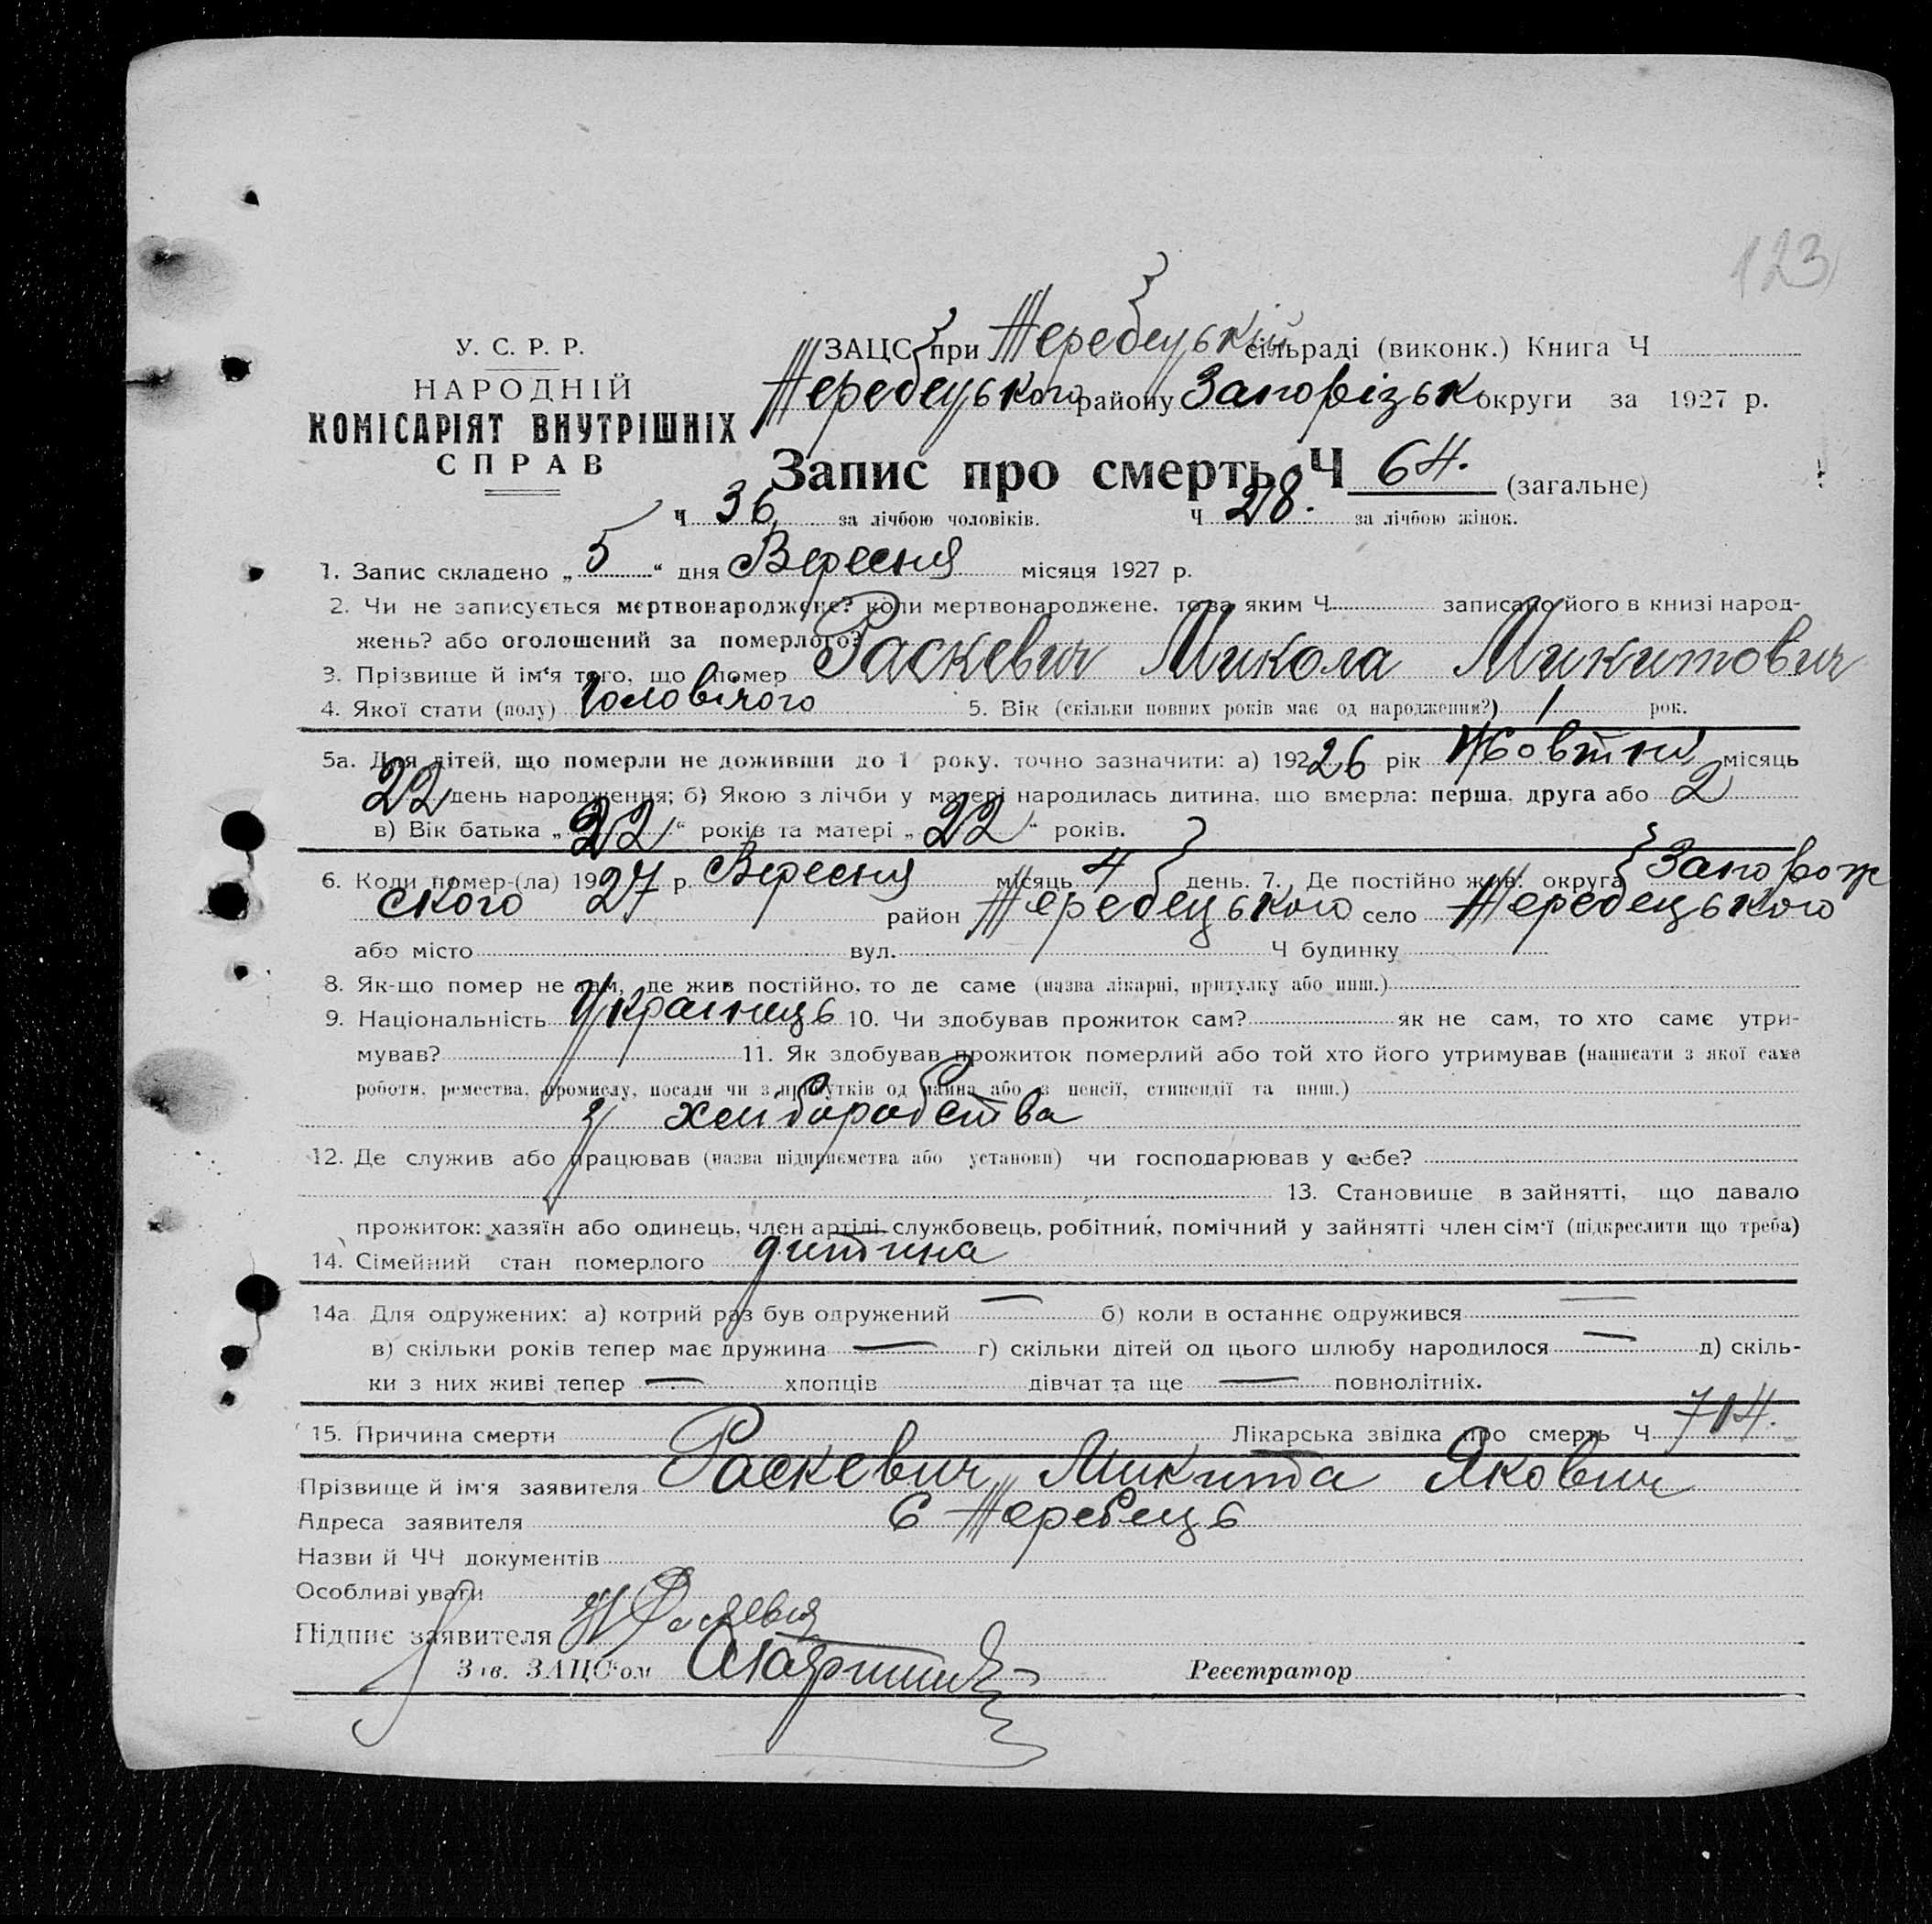 123
У. С. Р. Р.
НАРОДНІЙ
КОМІСАРІЯТ ВНУТРІШНІХ
СПРАВ
ЗАЦС при Жеребецький сільраді (виконк.) Книга Ч
Жеребецького району Запорізьк округи за 1927 р.
Запис про смерть Ч 64. (загальне)
Ч 36 за лічбою чоловіків. Ч 28. за лічбою жінок.
1. Запис складено „ 5 “ дня Вересня місяця 1927 р.
2. Чи не записується мертвонароджене? коли мертвонароджене, то за яким Ч записано його в книзі народ-
жень? або оголошений за померлого?
3. Прізвище й ім'я того, що помер Раскевич Микола Микитович
4. Якої стати (полу) Чоловічого 5. Вік (скільки повних років має од народження?) 1 рок.
5а. Для дітей, що померли не доживши до 1 року, точно зазначити: а) 19226 рік Жовтня місяць
22 день народження; б) Якою з лічби у матері народилась дитина, що вмерла: перша, друга або 2
в) Вік батька „ 22 “ років та матері „ 22 “ років.
6. Коли помер-(ла) 1927 р. Вересня місяць 4 день. 7. Де постійно жив: округа Запорож
ского 27 район Жеребецького село Жеребецького
або місто вул. Ч будинку
8. Як-що помер не там, де жив постійно, то де саме (назва лікарні, притулку або инш.)
9. Національність Українець 10. Чи здобував прожиток сам? як не сам, то хто саме утри-
мував? 11. Як здобував прожиток померлий або той хто його утримував (написати з якої саме
роботи, ремества, промислу, посади чи з прибутків од майна або з пенсії, стипендії та инш.)
з хлиборобства
12. Де служив або працював (назва підприємства або установи) чи господарював у себе?
13. Становище в зайнятті, що давало
прожиток: хазяїн або одинець, член артілі, службовець, робітник, помічний у зайнятті член сім'ї (підкреслити що треба)
14. Сімейний стан померлого дитина
14а. Для одружених: а) котрий раз був одружений — б) коли в останнє одружився —
в) скільки років тепер має дружина — г) скільки дітей од цього шлюбу народилося — д) скіль-
ки з них живі тепер — хлопців дівчат та ще — повнолітніх.
15. Причина смерти Лікарська звідка про смерть Ч 714.
Прізвище й ім'я заявителя Раскевич Микита Якович
Адреса заявителя С Жеребець
Назви й ЧЧ документів
Особливі уваги
Підпис заявителя
Зав. ЗАЦС'ом
Реєстратор